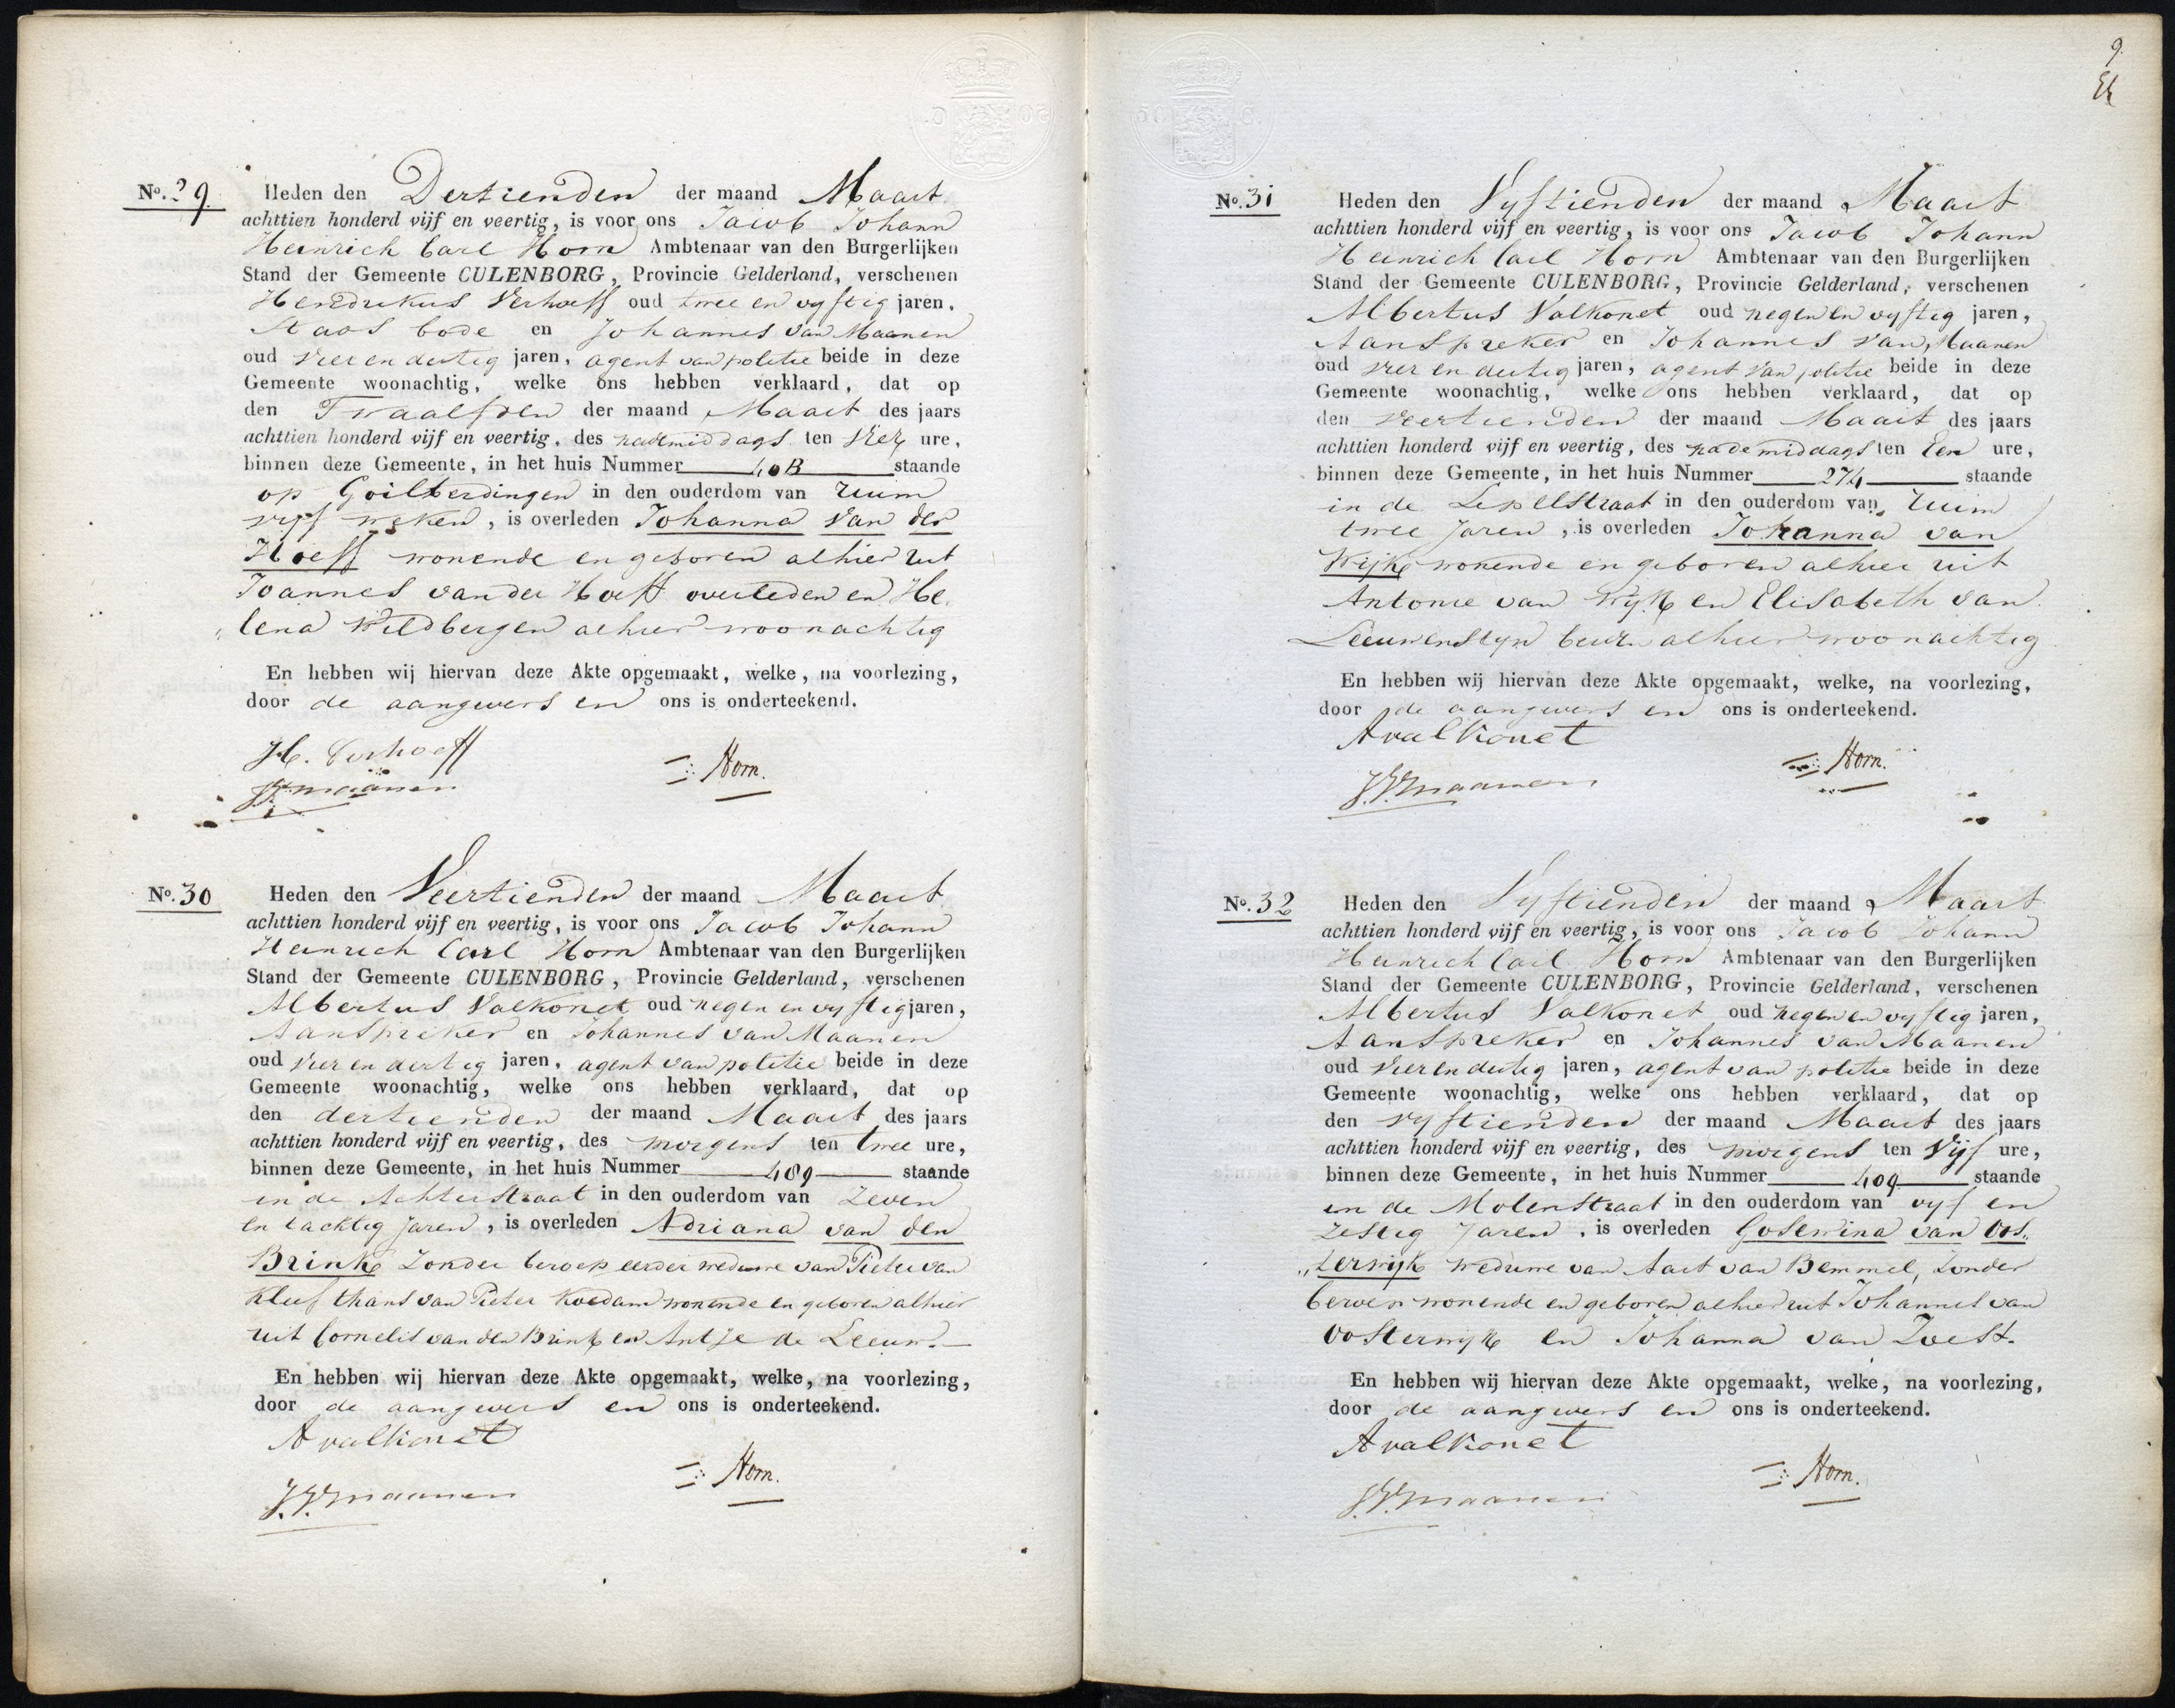 No. 29. Heden den Dertienden der maand Maart
achttien honderd vijf en veertig, is voor ons Jacob Johann
Heinrich Carl Horn Ambtenaar van den Burgerlijken
Stand der Gemeente CULENBORG, Provincie Gelderland, verschenen
Hendrikus Verhoeff oud twee en vyftig jaren,
Stads bode en Johannes van Maanen
oud vier en dertig jaren, agent van politie beide in deze
Gemeente woonachtig, welke ons hebben verklaard, dat op
den Twaalfden der maand Maart des jaars
achttien honderd vijf en veertig, des nademiddags ten vier ure,
binnen deze Gemeente, in het huis Nummer 40B staande
op Goilberdingen in den ouderdom van ruim
vyf weken, is overleden Johanna van der
Hoeff wonende en geboren alhier uit
Joannes van der Hoeff overleden en He,
„lena Wildbergen alhier woonachtig
En hebben wij hiervan deze Akte opgemaakt, welke, na voorlezing,
door de aangevers en ons is onderteekend.
H. Verhoeff
Horn.
J.V. maanen
No. 30 Heden den Veertienden der maand Maart
achttien honderd vijf en veertig, is voor ons Jacob Johann
Heinrich Carl Horn Ambtenaar van den Burgerlijken
Stand der Gemeente CULENBORG, Provincie Gelderland, verschenen
Albertus Valkonet oud negen en vyftig jaren,
Aanspreker en Johannes van Maanen
oud vier en dertig jaren, agent van politie beide in deze
Gemeente woonachtig, welke ons hebben verklaard, dat op
den dertienden der maand Maart des jaars
achttien honderd vijf en veertig, des morgens ten twee ure,
binnen deze Gemeente, in het huis Nummer 489 staande
in de Achterstraat in den ouderdom van zeven
en tachtig jaren, is overleden Adriana van den
Brink zonder beroep eerder weduwe van Pieter van
Kleef thans van Pieter Koedam wonende en geboren alhier
uit Cornelis van den Brink en Antje de Leeuw.
En hebben wij hiervan deze Akte opgemaakt, welke, na voorlezing,
door de aangevers en ons is onderteekend.
A valkonet
Horn.
J.V. maanen
9
No. 31 Heden den Vyftienden der maand Maart
achttien honderd vijf en veertig, is voor ons Jacob Johann
Heinrich Carl Horn Ambtenaar van den Burgerlijken
Stand der Gemeente CULENBORG, Provincie Gelderland, verschenen
Albertus Valkonet oud negen en vyftig jaren,
Aanspreker en Johannes van Maanen
oud vier en dertig jaren, agent van politie beide in deze
Gemeente woonachtig, welke ons hebben verklaard, dat op
den veertienden der maand Maart des jaars
achttien honderd vijf en veertig, des nademiddags ten Een ure,
binnen deze Gemeente, in het huis Nummer 274 staande
in de Lepelstraat in den ouderdom van ruim
twee jaren, is overleden Johanna van
Wijk wonende en geboren alhier uit
Antonie van Wyk en Elisabeth van
Leeuwensteyn beiden alhier woonachtig
En hebben wij hiervan deze Akte opgemaakt, welke, na voorlezing,
door de aangevers en ons is onderteekend.
A valkonet
Horn.
J.V. maanen
No. 32 Heden den Vyftienden der maand Maart
achttien honderd vijf en veertig, is voor ons Jacob Johann
Heinrich Carl Horn Ambtenaar van den Burgerlijken
Stand der Gemeente CULENBORG, Provincie Gelderland, verschenen
Albertus Valkonet oud negen en vyftig jaren,
Aanspreker en Johannes van Maanen
oud vier en dertig jaren, agent van politie beide in deze
Gemeente woonachtig, welke ons hebben verklaard, dat op
den vyftienden der maand Maart des jaars
achttien honderd vijf en veertig, des morgens ten Vijf ure,
binnen deze Gemeente, in het huis Nummer 409 staande
in de Molenstraat in den ouderdom van vyf en
zestig jaren, is overleden Gosewina van Oos„
„terwijk weduwe van Aart van Bemmel, zonder
beroep wonende en geboren alhier uit Johannes van
Oosterwyk en Johanna van Zoest.
En hebben wij hiervan deze Akte opgemaakt, welke, na voorlezing,
door de aangevers en ons is onderteekend.
A valkonet
Horn.
J.V. maanen